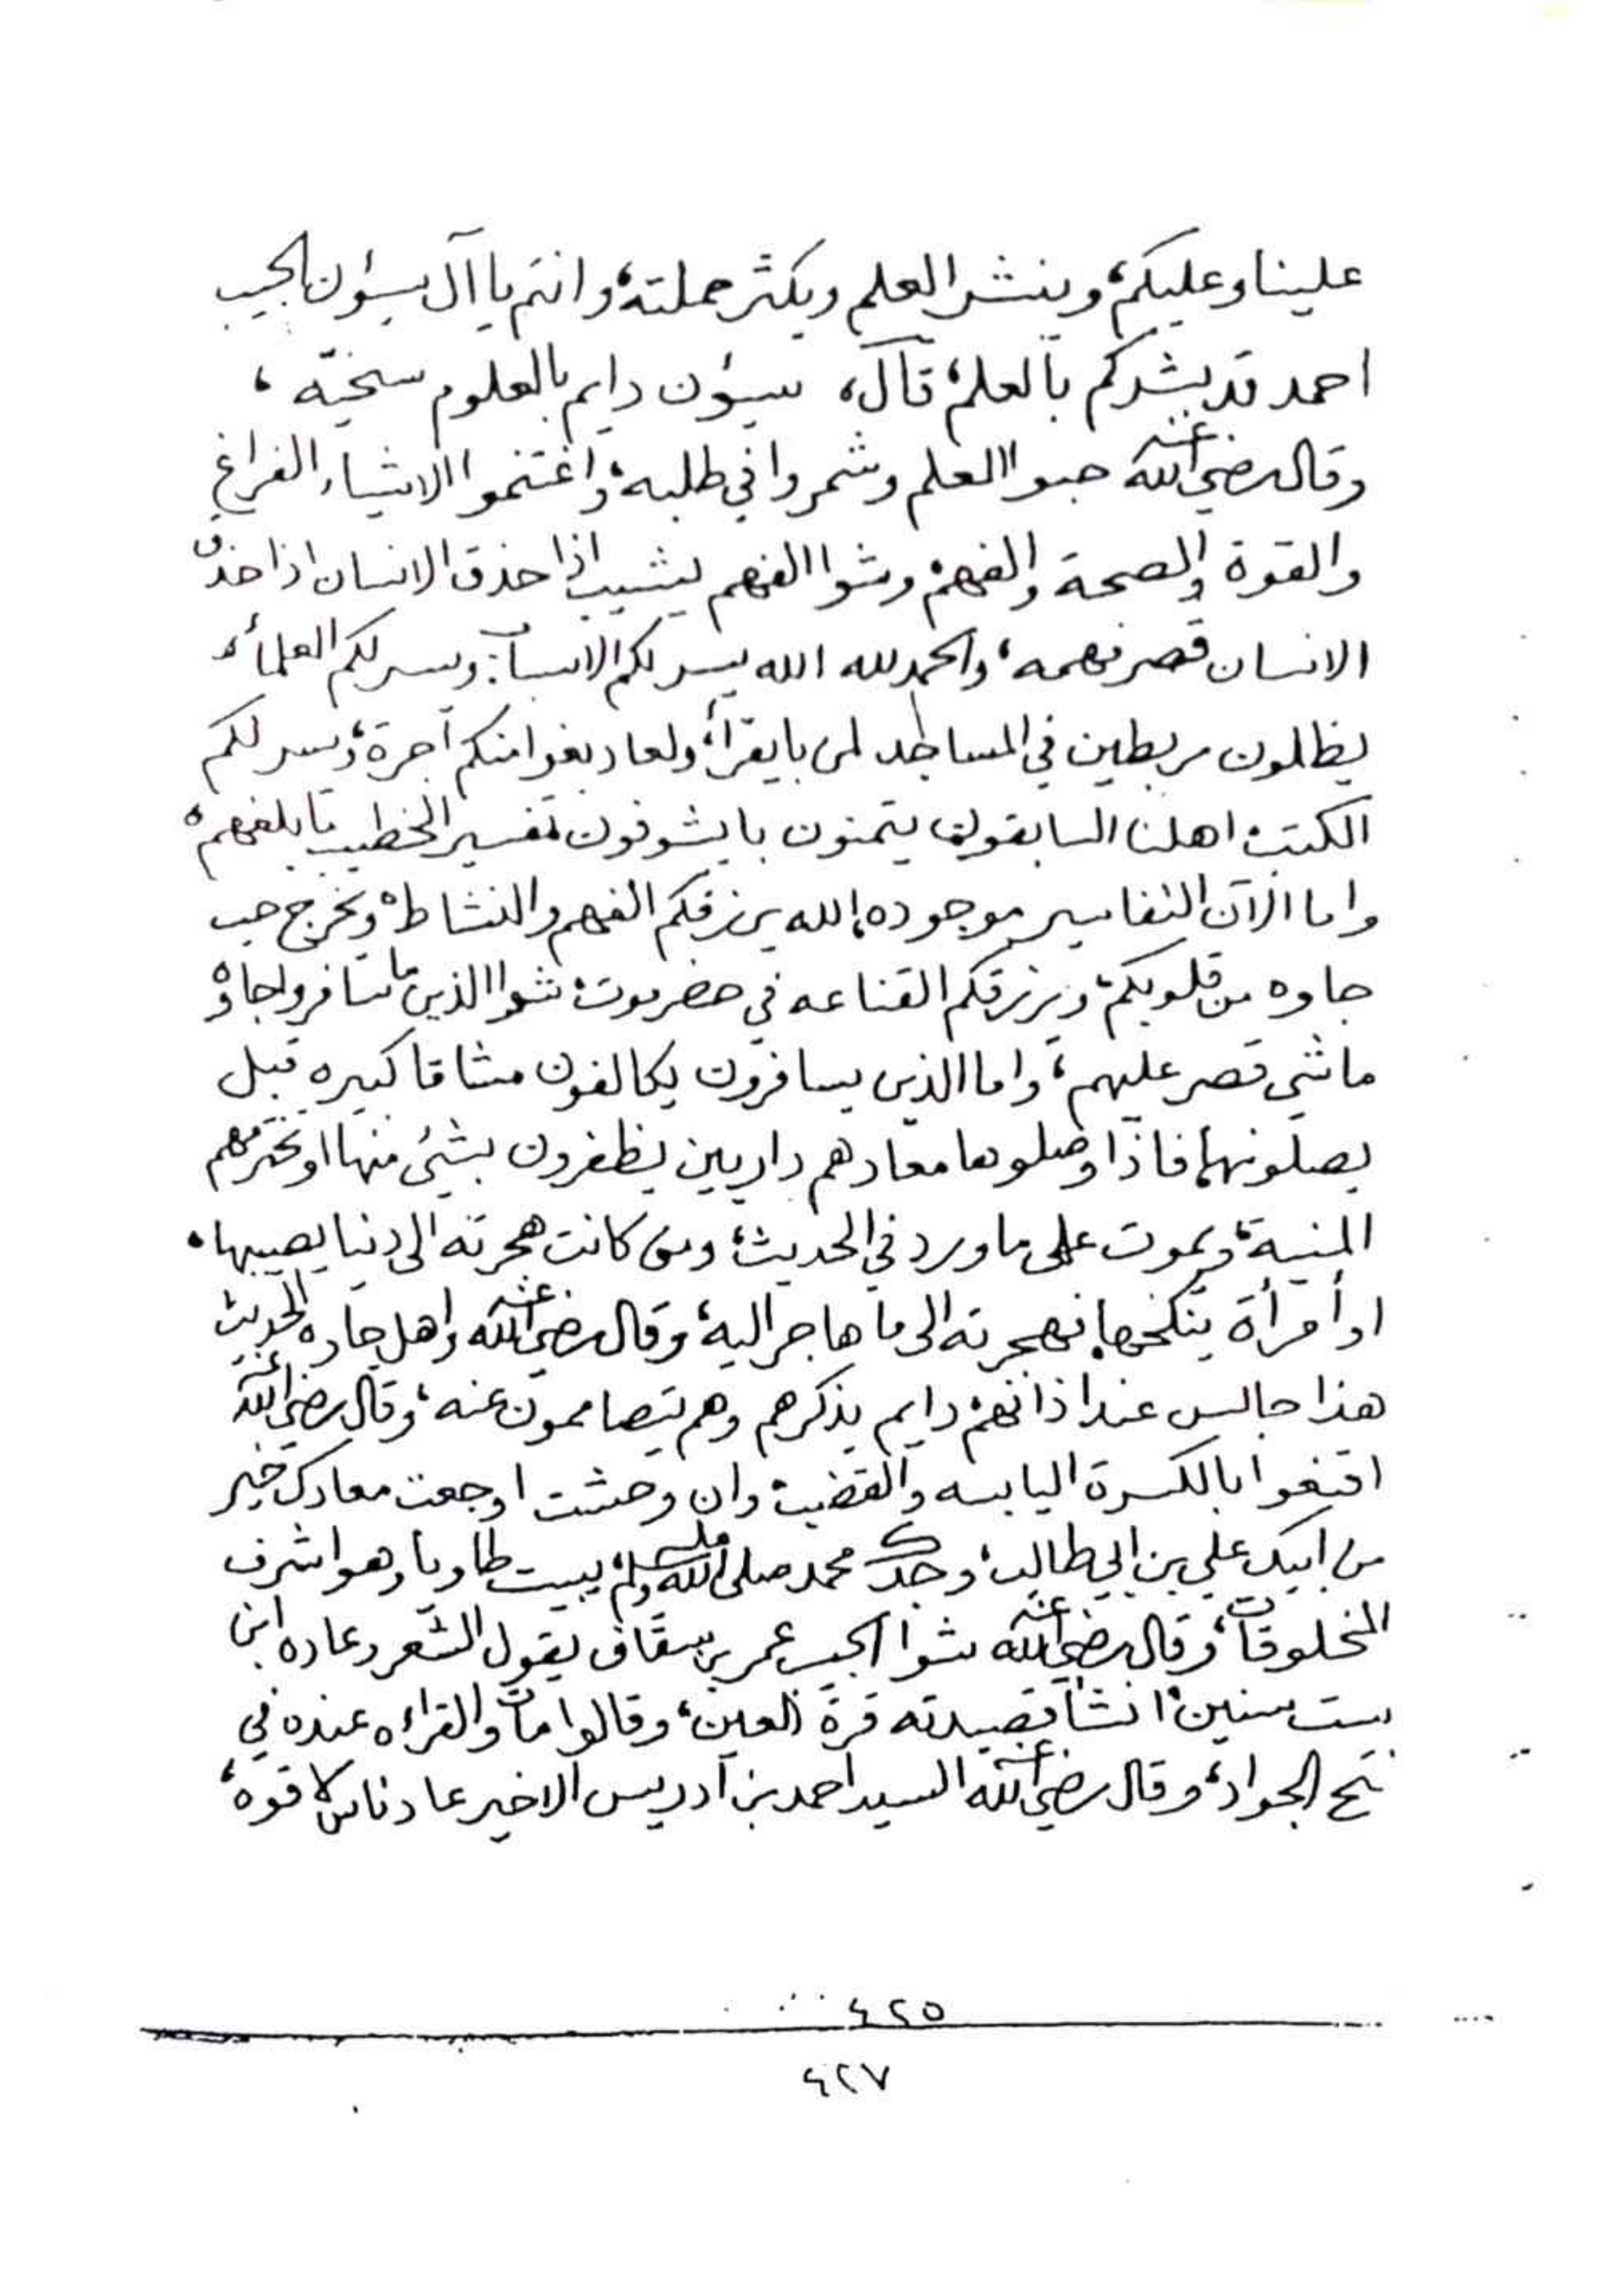 علينا وعليكم، وينشر العلم ويكثر حملته، وانتم يا آل سيؤن الحبيب
احمد قد بشركم بالعلم، قال، سيؤن دايم بالعلوم سخيّه،
وقال رضي الله عنه حبوا العلم وشمروا في طلبه، واغتنموا الاشياء الفراغ
والقوة والصحة والفهم، وشوا الفهم يشيب اذا حذق الانسان اذا حذق
الانسان قصر فهمه، والحمد لله الله يسر لكم الاسباب، ويسر لكم العلماء
يظلون مربطين في المساجد لمن بايقرأ، ولعاد بغوا منكم أجرة، ويسر لكم
الكتب، اهلنا السابقون يتمنون بايشوفون تفسير الخطيب ما بلغهم،
واما الآن التفاسير موجوده، الله يرزقكم الفهم والنشاط، ويخرج حب
جاوه من قلوبكم، ويرزقكم القناعه في حضرموت، شوا الذين ما سافروا جاوه
ماشي قصر عليهم، واما الذين يسافرون يكالفون مشاقا كبيره قبل
يصلونها، فاذا وصلوها معادهم داريين يظفرون بشيء منها او تخترمهم
المنية، ويموت على ما ورد في الحديث، ومن كانت هجرته الى دنيا يصيبها،
او أمرأة ينكحها، فهجرته الى ما هاجر اليه، وقال رضي الله عنه واهل جاوه الحديث
هذا جالس عند اذانهم، دايم يذكرهم وهم يتصاممون عنه، وقال رضي الله عنه
اقنعوا بالكسرة اليابسه والقضب، وان وحشت او جعت معادك خير
من ابيك علي بن ابي طالب، وجدك محمد صلى الله عليه وسلم، يبيت طاويا وهو اشرف
المخلوقات، وقال رضي الله عنه شوا الحبيب عمر بن سقاف يقول الشعر وعاده ابن
ست سنين، انشأ قصيدته قرة العين، وقالوا مات والقراءه عنده في
فتح الجواد، وقال رضي الله عنه السيد احمد بن ادريس الاخير عاد ناس لاقوه،
٤٢٥
٤٢٧